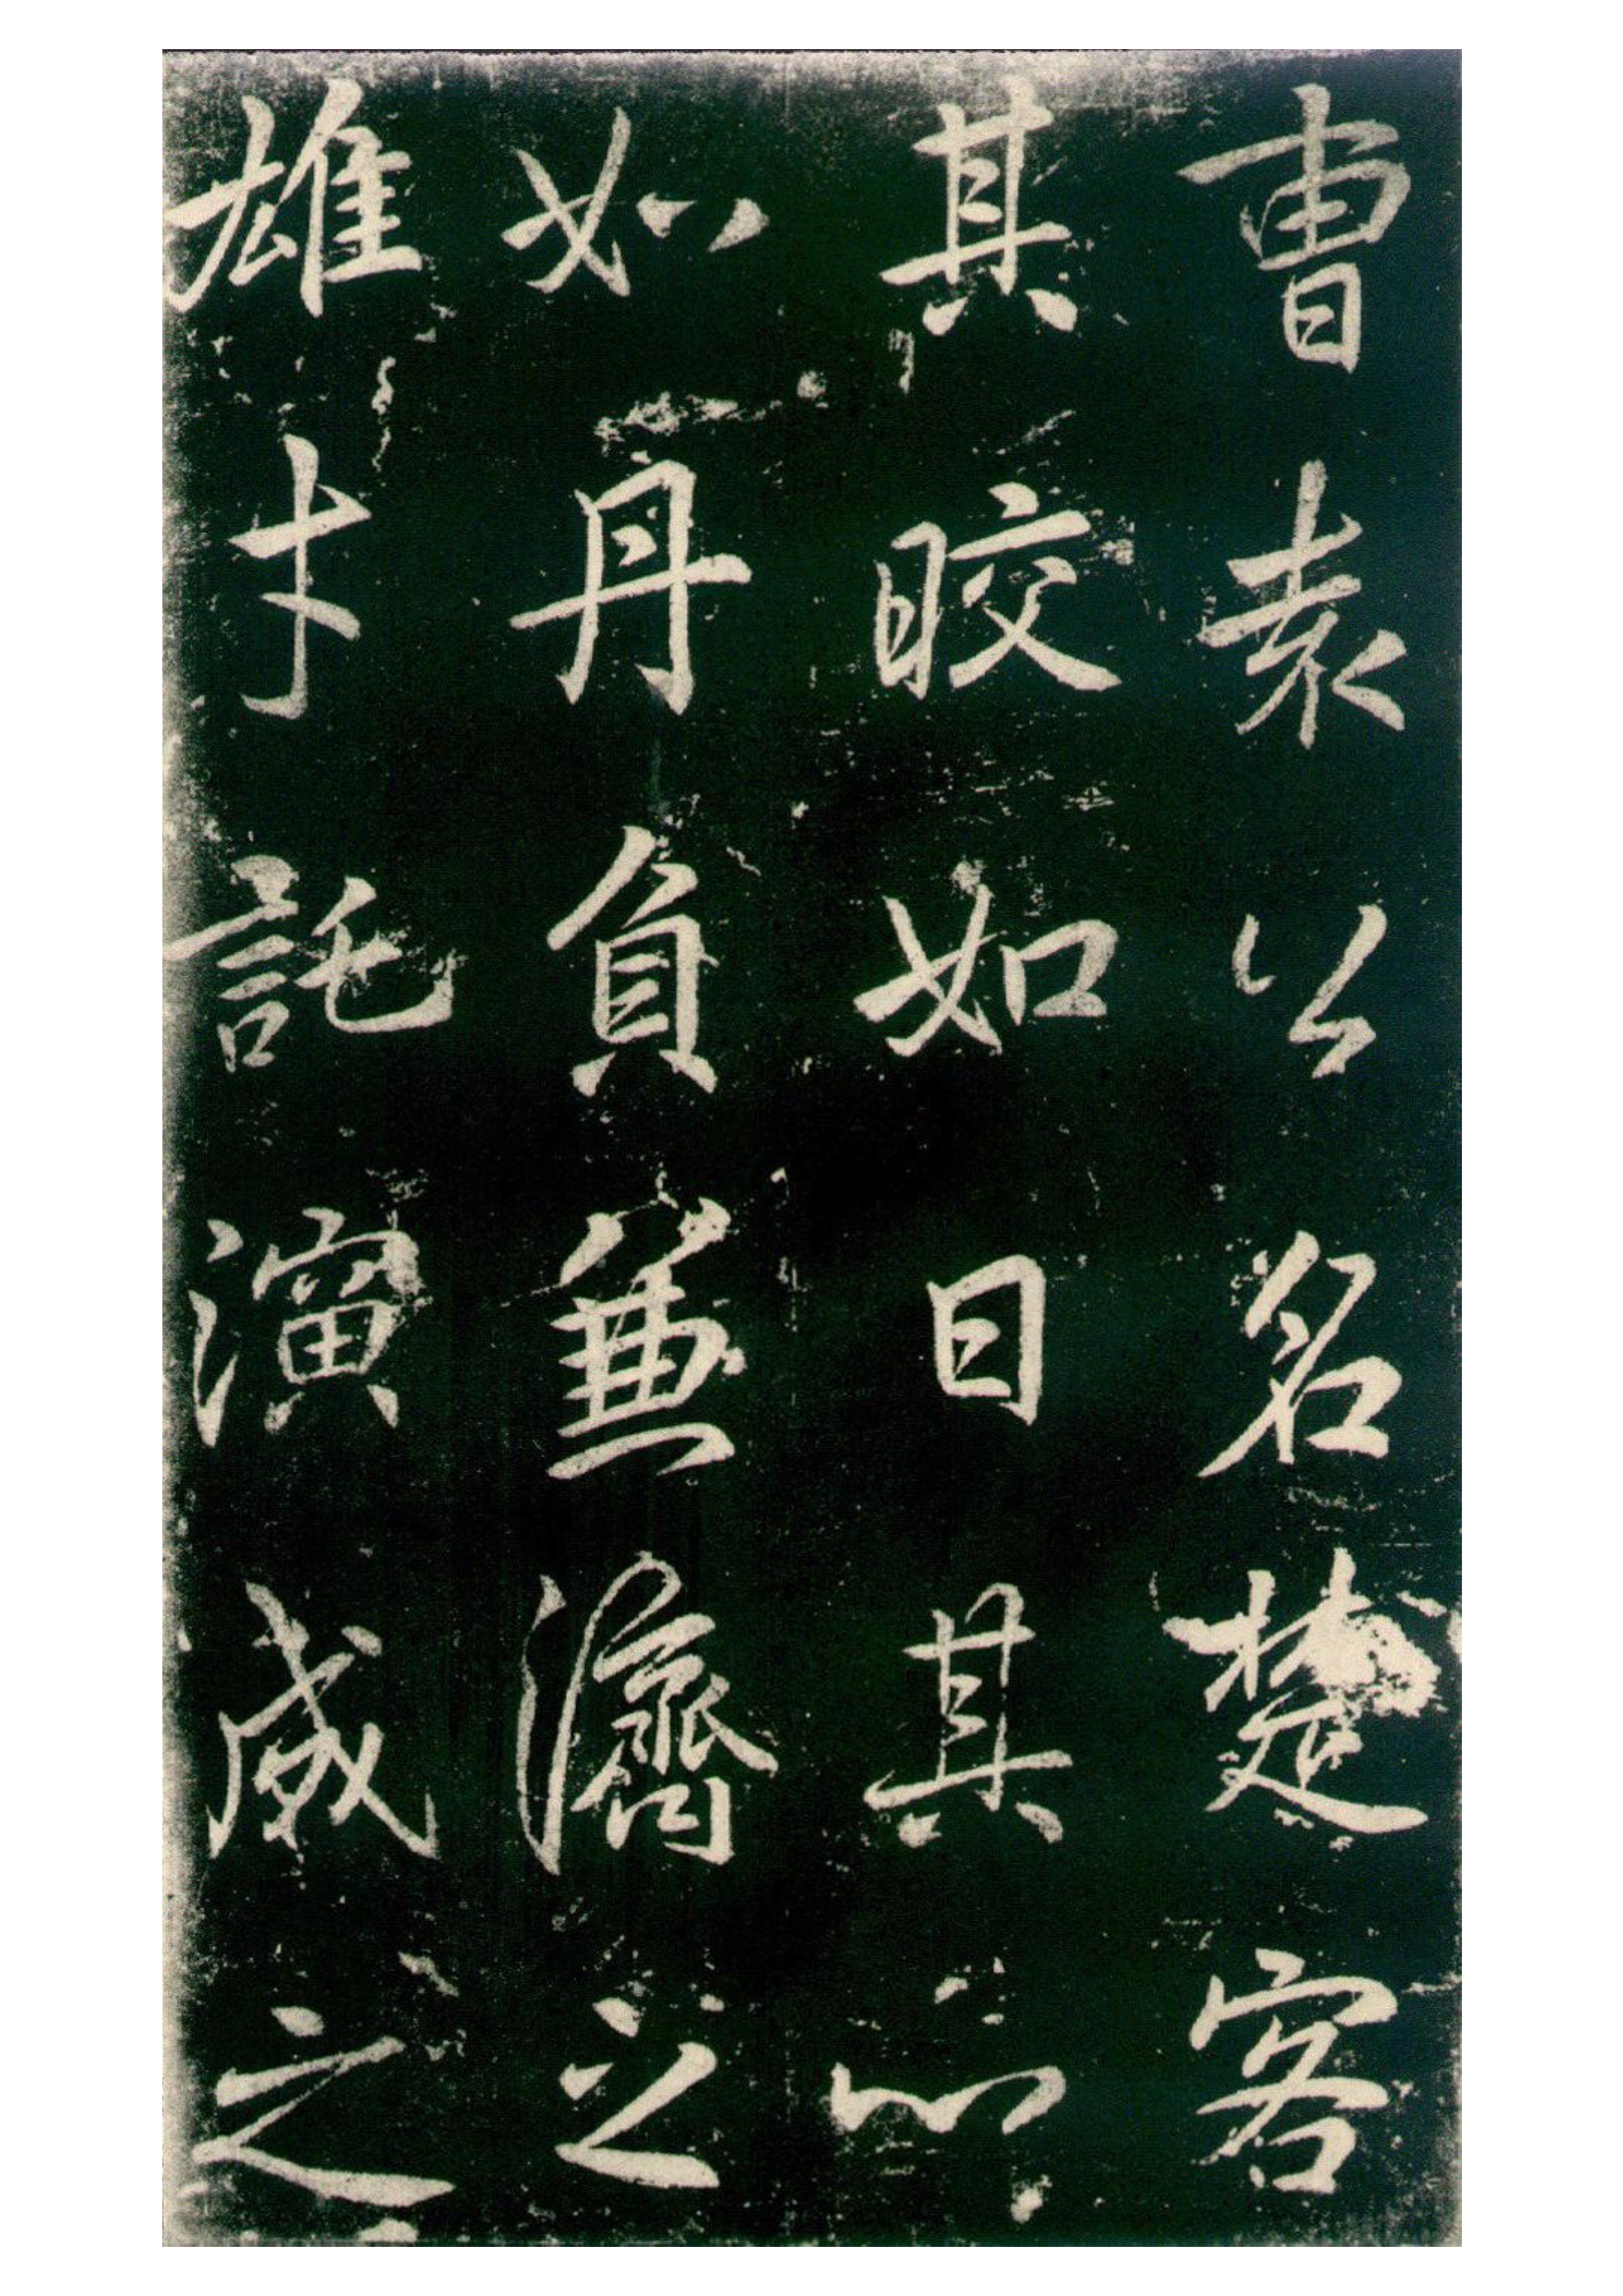 曹袁公名楚客
其晈如日其心
如丹負兼濟之
雄才託演威之